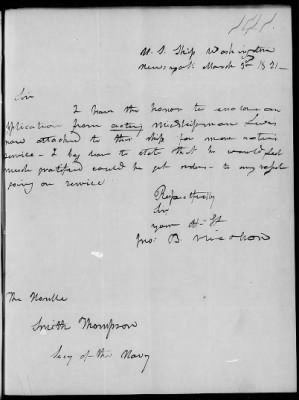 U. S. Ship Washington
New York March 5th 1821 –
Sir
I have the honor to enclose an
application from acting Midshipman
now attached to this ship for more active
service – I beg leave to state that he would feel
much gratified could he get orders – to any vessel
going on service
Respectfully
Sir
your Ob St
Jno B Nicolson
The Honble
Smith Thompson
Secy of the Navy